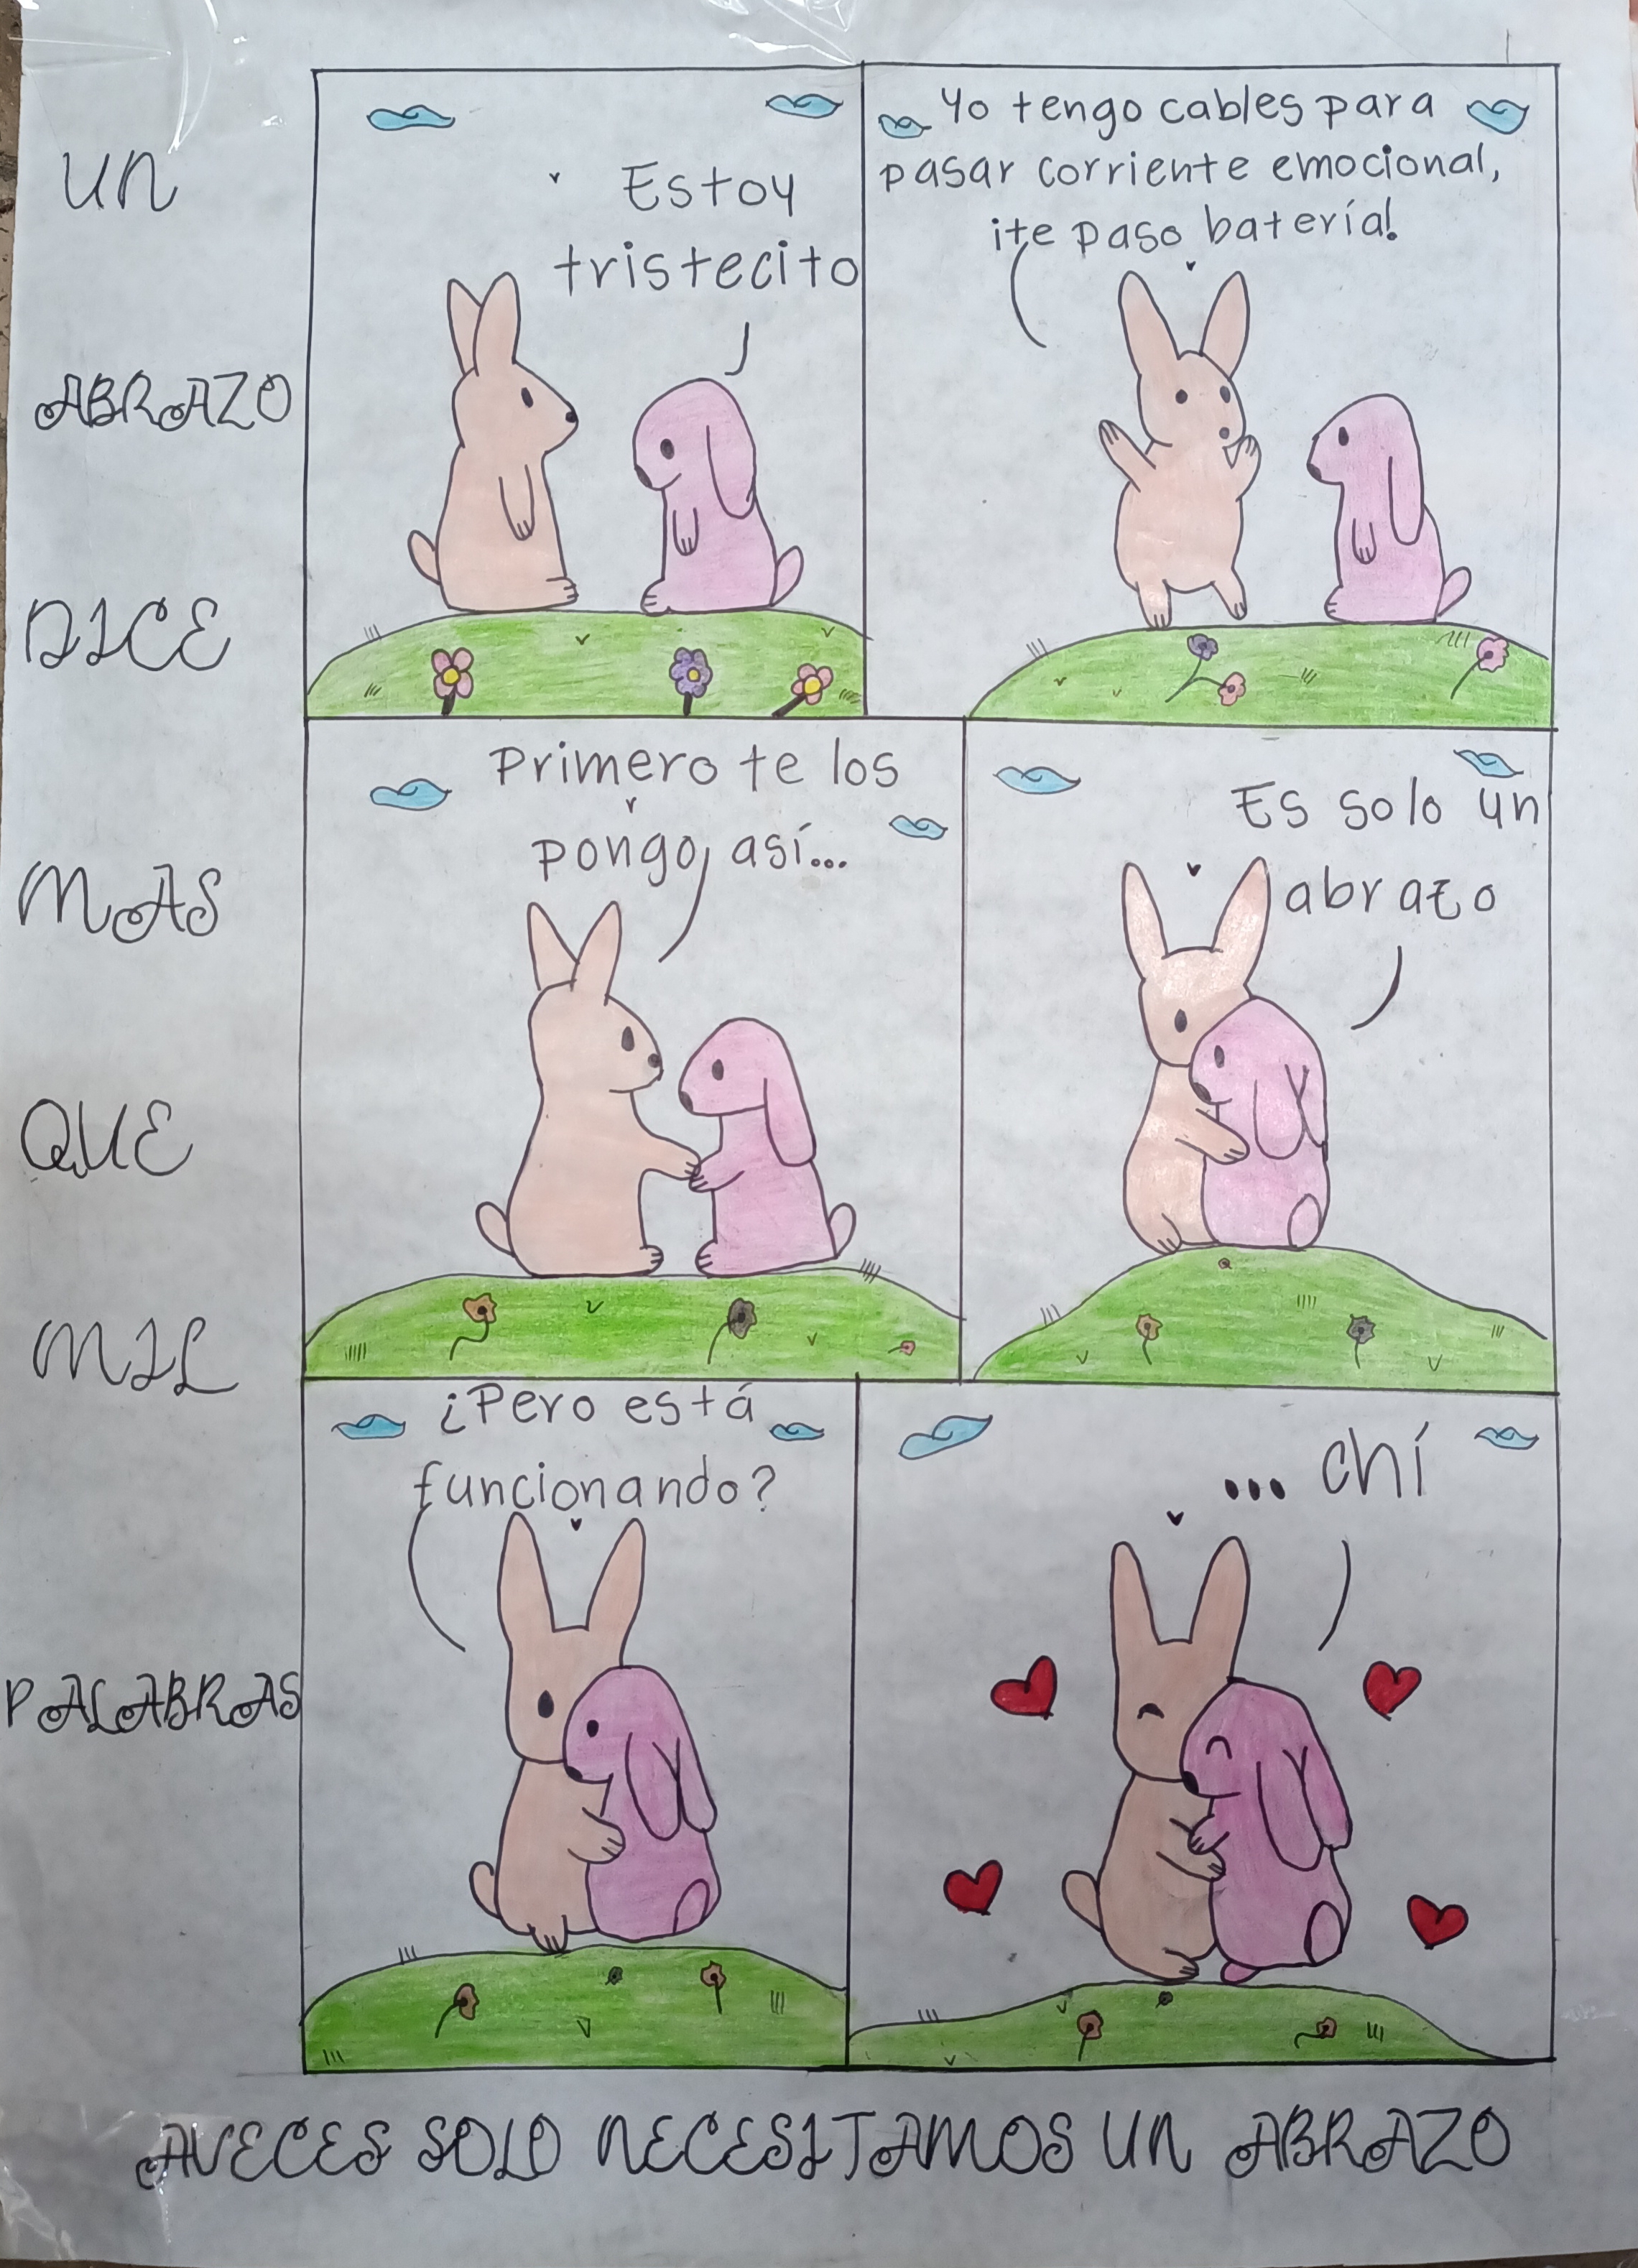 UN
ABRAZO
DICE
MAS
QUE
MIL
PALABRAS
Estoy
tristecito
Yo tengo cables para
pasar corriente emocional,
¡te paso batería!
Primero te los
pongo así...
Es solo un
abrazo
¿Pero está
funcionando?
... chí
AVECES SOLO NECESITAMOS UN ABRAZO